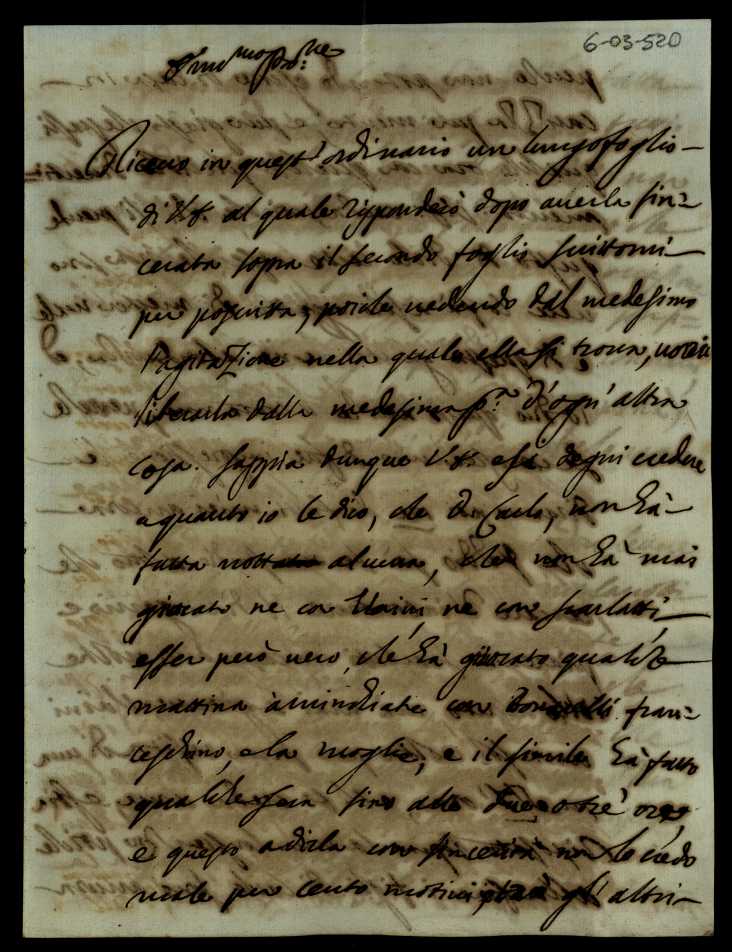 6-03-520
Riceuo in quest'ordinario un lungo foglio
di V.S. al quale risponderò dopo auerla sin=
cerata sopra il secondo foglio scrittomi
per poscritta, poiche uedendo dal medesimo
l'agitazione nella quale ella si troua, uorrei
liberarla dalla medesima p.ª d'ogn'altra
cosa. Sappia dunque V.S. e si degni credere
a quanto io le dico, che D. Carlo, non hà
fatta nottata alcuna, che non hà mai
giocato ne con ne con Scarlatti
esser però uero, che hà giocato qualche
mattina à minchiate con fran=
ceschino, e la moglie, e il simile hà fatto
qualche sera sino alle due o tre ore
e questo a dirla con sincerità non le credo
male per cento motiui gl'altri